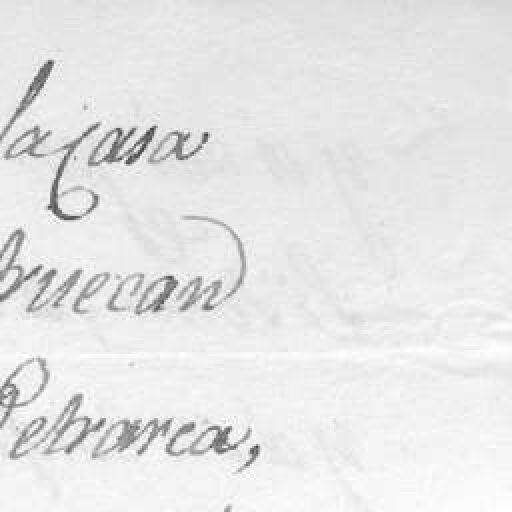 la casa
truecan
Petrarca,